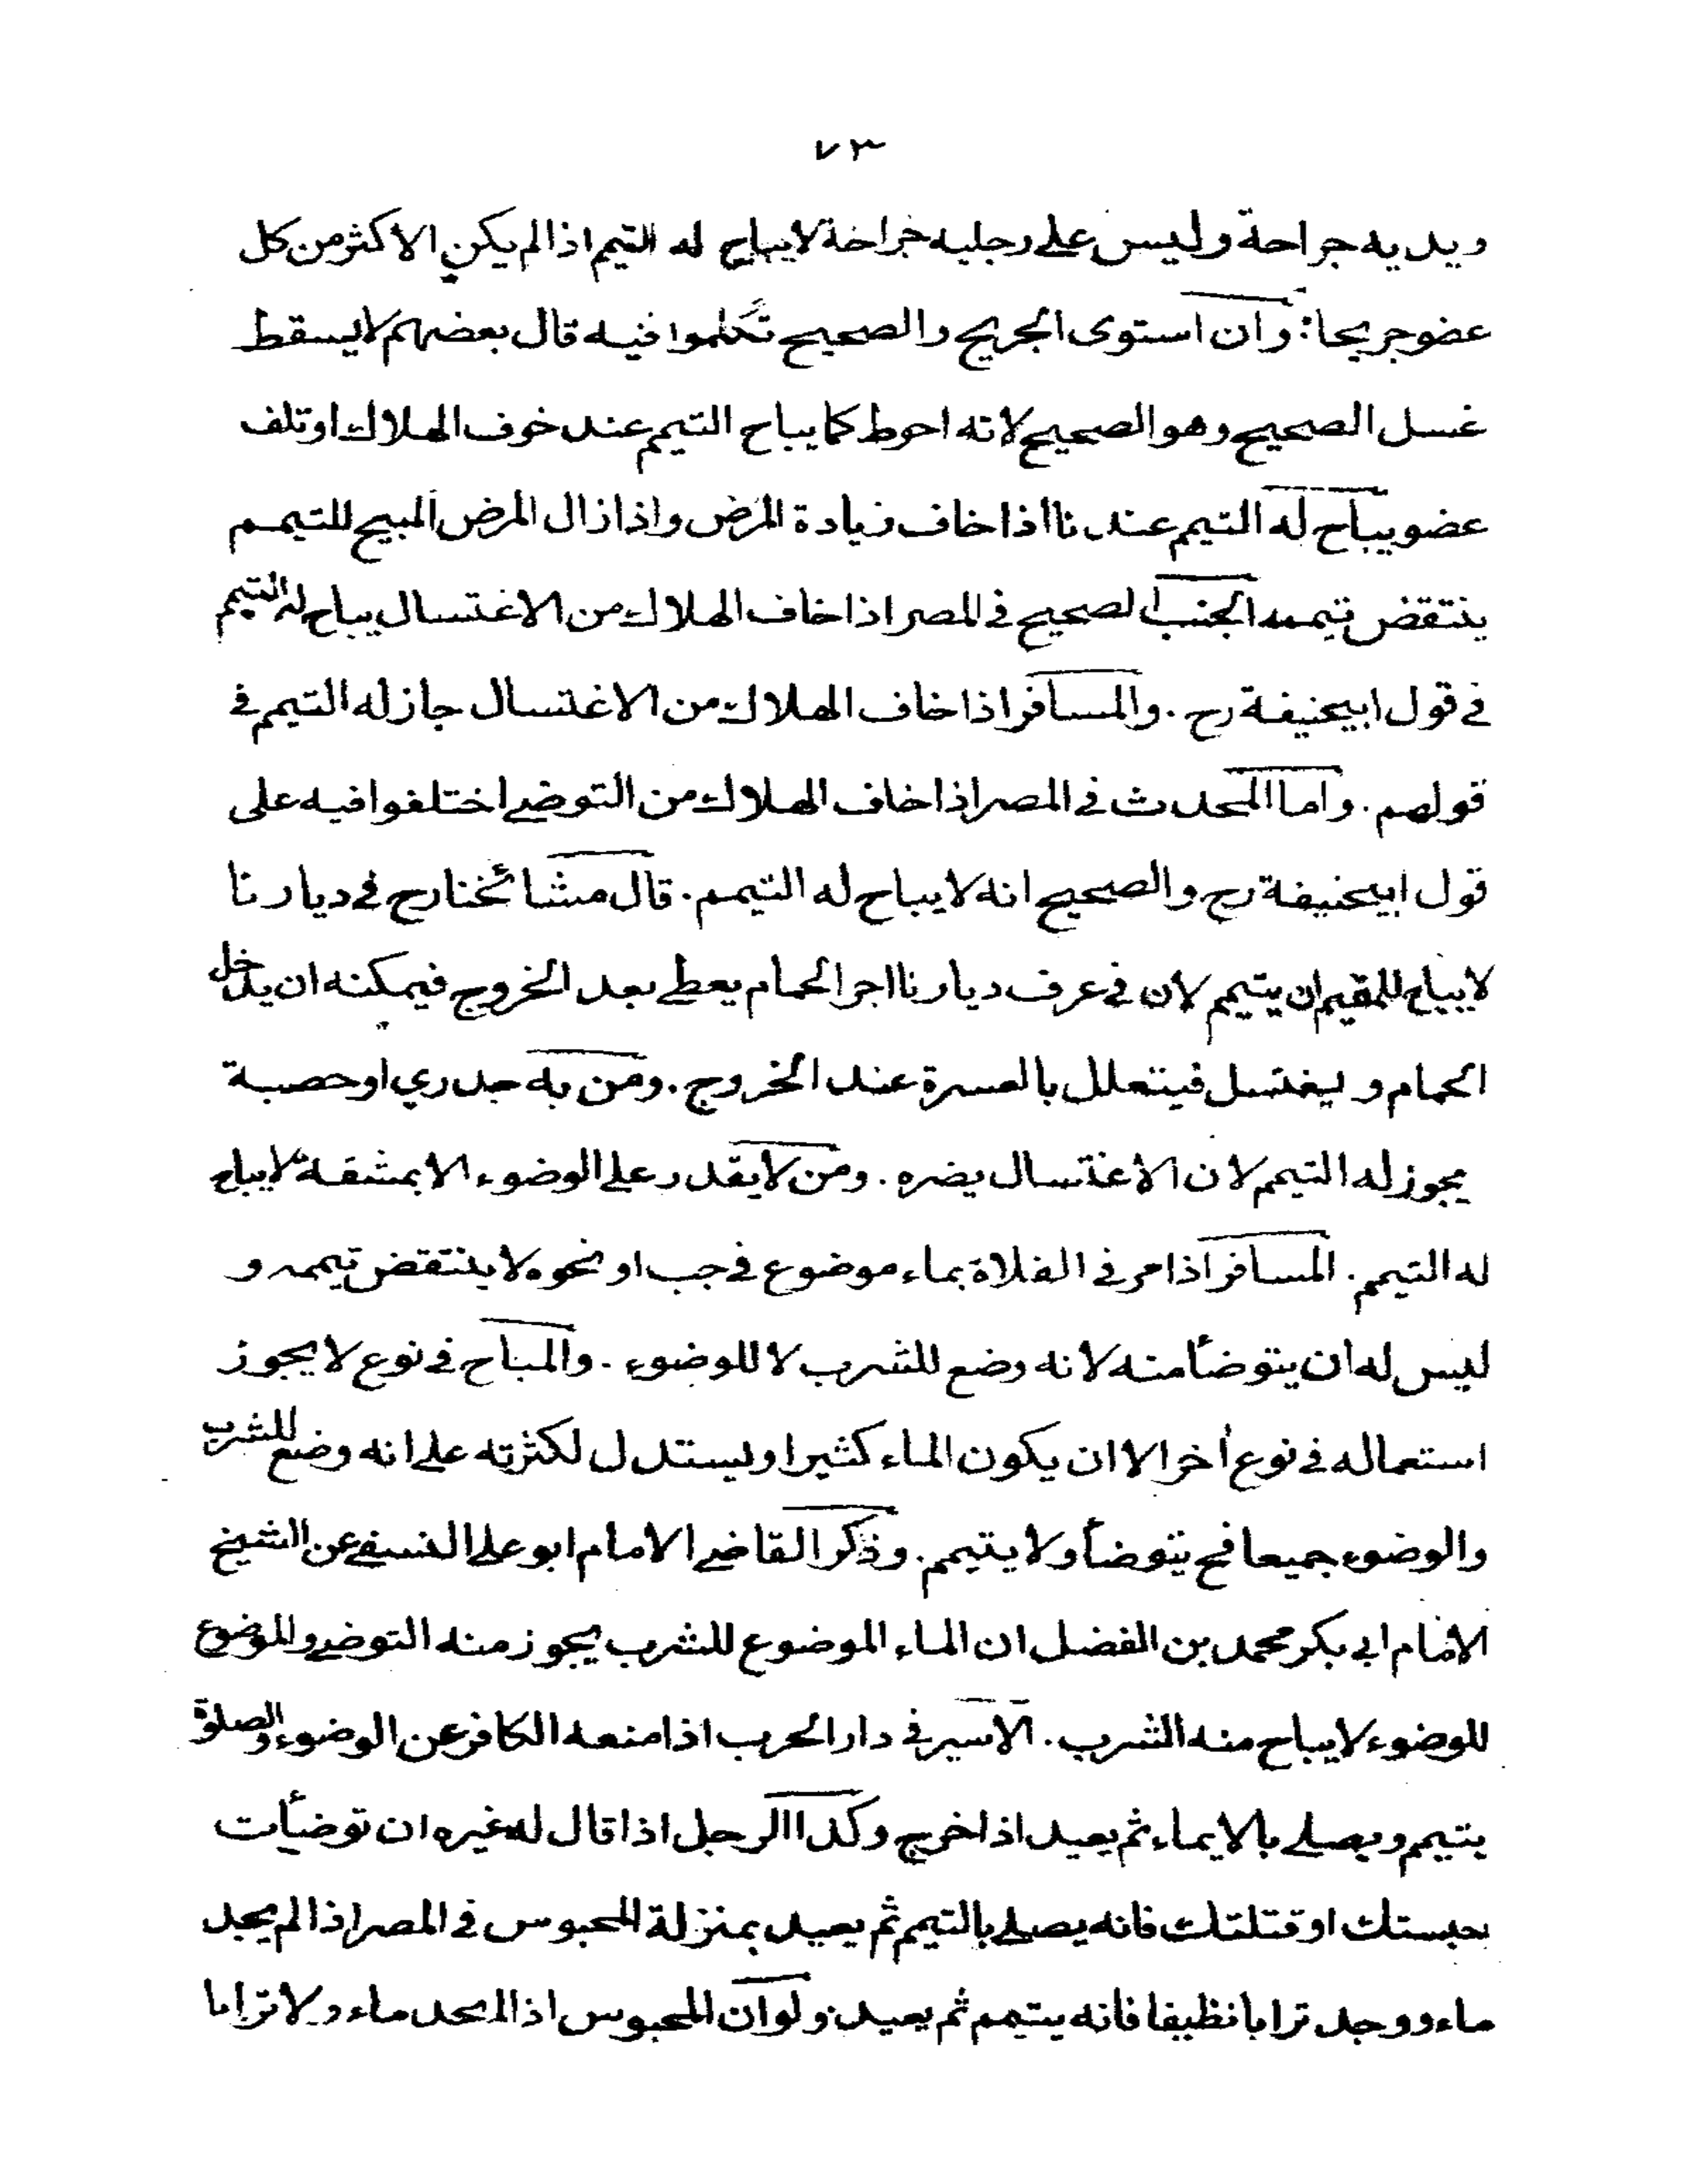 ٧٣
ويديه جراحة وليس على رجليه جراحة لايباح له التيمم اذا لم يكن الاكثر من كل
عضو جريحا: وان استوى الجريح والصحيح تكلموا فيه قال بعضهم لايسقط
غسل الصحيح وهو الصحيح لانه احوط كما يباح التيمم عند خوف الهلاك او تلف
عضو يباح له التيمم عندنا اذا خاف زيادة المرض واذا زال المرض المبيح للتيمم
ينتقض تيممه الجنب الصحيح في المصر اذا خاف الهلاك من الاغتسال يباح له التيمم
في قول ابيحنيفة رح . والمسافر اذا خاف الهلاك من الاغتسال جاز له التيمم في
قولهم . واما المحدث في المصر اذا خاف الهلاك من التوضي اختلفوا فيه على
قول ابيحنيفة رح والصحيح انه لايباح له التيمم . قال مشائخنا رح في ديارنا
لايباح للمقيم ان يتيمم لان في عرف ديارنا اجر الحمام يعطى بعد الخروج فيمكنه ان يدخل
الحمام و ليغتسل فيتعلل بالعسرة عند الخروج . ومن به جدري او حصبة
يجوز له التيمم لان الاغتسال يضره . ومن لايقدر على الوضوء الا بمشقة لايباح
له التيمم . المسافر اذا مر في الفلاة بماء موضوع في جب او نحوه لا ينتقض تيممه و
ليس له ان يتوضأ منه لانه وضع للشرب لا للوضوء . والمباح في نوع لا يجوز
استعماله في نوع أخر الا ان يكون الماء كثيرا ويستدل لكثرته على انه وضع للشرب
والوضوء جميعا فح يتوضأ ولا يتيمم . وذكر القاضي الامام ابو علي النسفي عن الشيخ
الامام ابي بكر محمد بن الفضل ان الماء الموضوع للشرب يجوز منه التوضي والموضوع
للوضوء لايباح منه الشرب . الاسير في دار الحرب اذا منعه الكافر عن الوضوء والصلوة
يتيمم ويصلي بالايماء ثم يعيد اذا خرج وكذا الرجل اذا قال له غيره ان توضأت
حبستك او قتلتك فانه يصلي بالتيمم ثم يعيد بمنزلة المحبوس في المصر اذا لم يجد
ماء ووجد ترابا نظيفا فانه يتيمم ثم يعيد ولو ان المحبوس اذا لم يجد ماء ولا ترابا